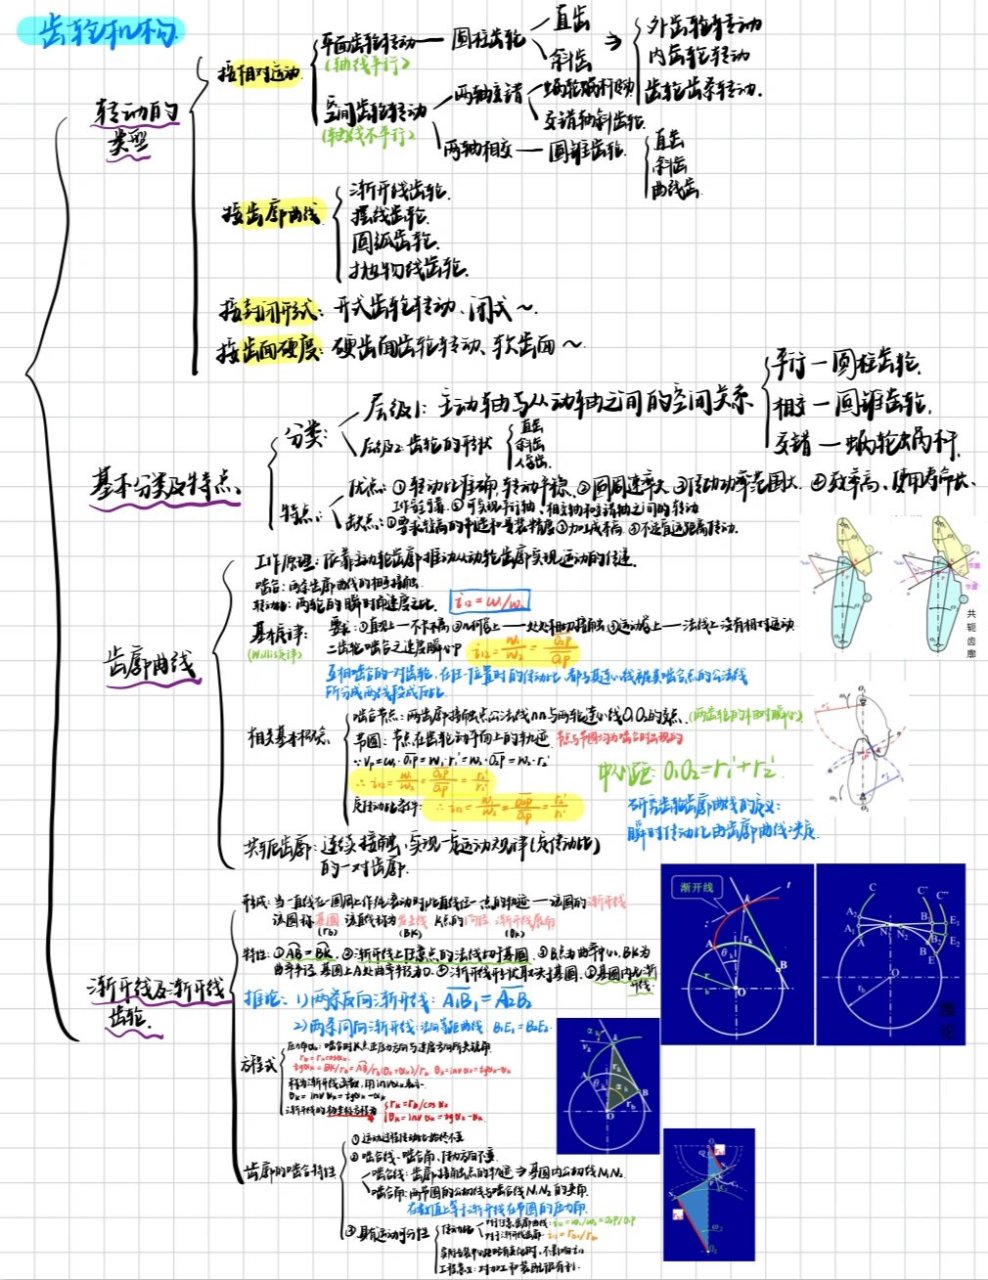 齿轮机构
转动的
类型
按相对运动
平面齿轮转动 — 圆柱齿轮
(轴线平行)
直齿
斜齿
外齿轮转动
内齿轮转动
齿轮齿条转动.
空间齿轮转动
(轴线不平行)
两轴交错
蜗轮蜗杆
交错轴斜齿轮.
两轴相交 — 圆锥齿轮
直齿
斜齿
曲线齿
按齿廓曲线
渐开线齿轮.
摆线齿轮.
圆弧齿轮.
抛物线齿轮.
按封闭形式: 开式齿轮转动、闭式~.
按齿面硬度: 硬齿面齿轮转动、软齿面~
基本分类及特点
分类:
层级1: 主动轴与从动轴之间的空间关系
平行 — 圆柱齿轮.
相交 — 圆锥齿轮.
交错 — 蜗轮蜗杆.
层级2: 齿轮的形状
直齿
斜齿
人字齿.
特点:
优点: ①转动比准确,转动平稳. ②圆周速率大 ③传动功率范围大. ④效率高、使用寿命长.
工作可靠. ⑤可实现平行轴、相交轴和交错轴之间的转动
缺点: ①要求较高的制造和安装精度 ②加工成本高. ③不适宜远距离传动.
齿廓曲线
工作原理: 依靠主动轮齿廓推动从动轮齿廓实现运动的传递.
啮合: 两条齿廓曲线的相互接触
转动比: 两轮的瞬时角速度之比. i₁₂ = ω₁/ω₂
基本定律:
(Willis定律)
要求: ①直观上—不卡不离 ②几何上—处处相切接触 ③运动学上—法线上没有相对运动
二齿轮啮合之速度瞬心P i₁₂ = ω₁/ω₂ = O₂P/O₁P
互相啮合的一对齿轮,在任一位置时的传动比,都与其连心线被其啮合点的公法线
所分成两线段成反比
相关基本概念
啮合节点: 两齿廓接触点公法线nn与两轮连心线O₁O₂的交点. (两齿轮的相对瞬心)
节圆: 节点在齿轮动平面上的轨迹. 节点与节圆均为啮合时出现的
∵ Vp = ω₁·O₁P = ω₁·r₁' = ω₂·O₂P = ω₂·r₂'
∴ i₁₂ = ω₁/ω₂ = O₂P/O₁P = r₂'/r₁'
中心距: O₁O₂ = r₁' + r₂'
定传动比条件: ∴ i₁₂ = ω₁/ω₂ = O₂P/O₁P = r₂'/r₁'
研究齿轮齿廓曲线的意义:
瞬时传动比由齿廓曲线决定
共轭齿廓: 连续接触,实现一定运动规律(定传动比)
的一对齿廓.
共轭齿廓
渐开线及渐开线
齿轮.
形成: 当一直线在一圆周上作纯滚动时,此直线任一点的轨迹——该圆的渐开线
该圆称基圆 该直线称为发生线 K点的向径 渐开线展角
(rb) (BK) (θk)
特性: ①AB = BK. ②渐开线上任意点的法线切于基圆. ③B点为曲率中心, BK为
曲率半径. 基圆上A处曲率半径为0. ④渐开线形状取决于基圆. ⑤基圆内无渐
开线.
推论: 1) 两条反向渐开线: A₁B₁ = A₂B₂
2) 两条同向渐开线: 法向等距曲线 B₁E₁ = B₂E₂
方程式
压力角αk: 啮合时K点正压力方向与速度方向所夹锐角.
rb = rk cosαk
tgαk = BK/rb = AB/rb = rb(θk+αk)/rb θk = invαk = tgαk-αk
称为渐开线函数,用invαk表示.
θk = invαk = tgαk-αk
渐开线的极坐标方程为 rk = rb/cosαk
θk = invαk = tgαk-αk
齿廓的啮合特性
①运动过程传动比始终不变
②啮合线、啮合角、传动方向不变.
啮合线: 齿廓接触点的轨迹 ⇒ 基圆内公切线N₁N₂
啮合角: 两节圆的公切线与啮合线N₁N₂的夹角.
在数值上等于渐开线在节圆的压力角.
③具有运动可分性
传动比
对任意齿廓曲线: i₁₂ = ω₁/ω₂ = O₂P/O₁P
对于渐开线齿廓: i₁₂ = rb₂/rb₁
工程意义: 对加工和装配很有利.
渐开线
推论